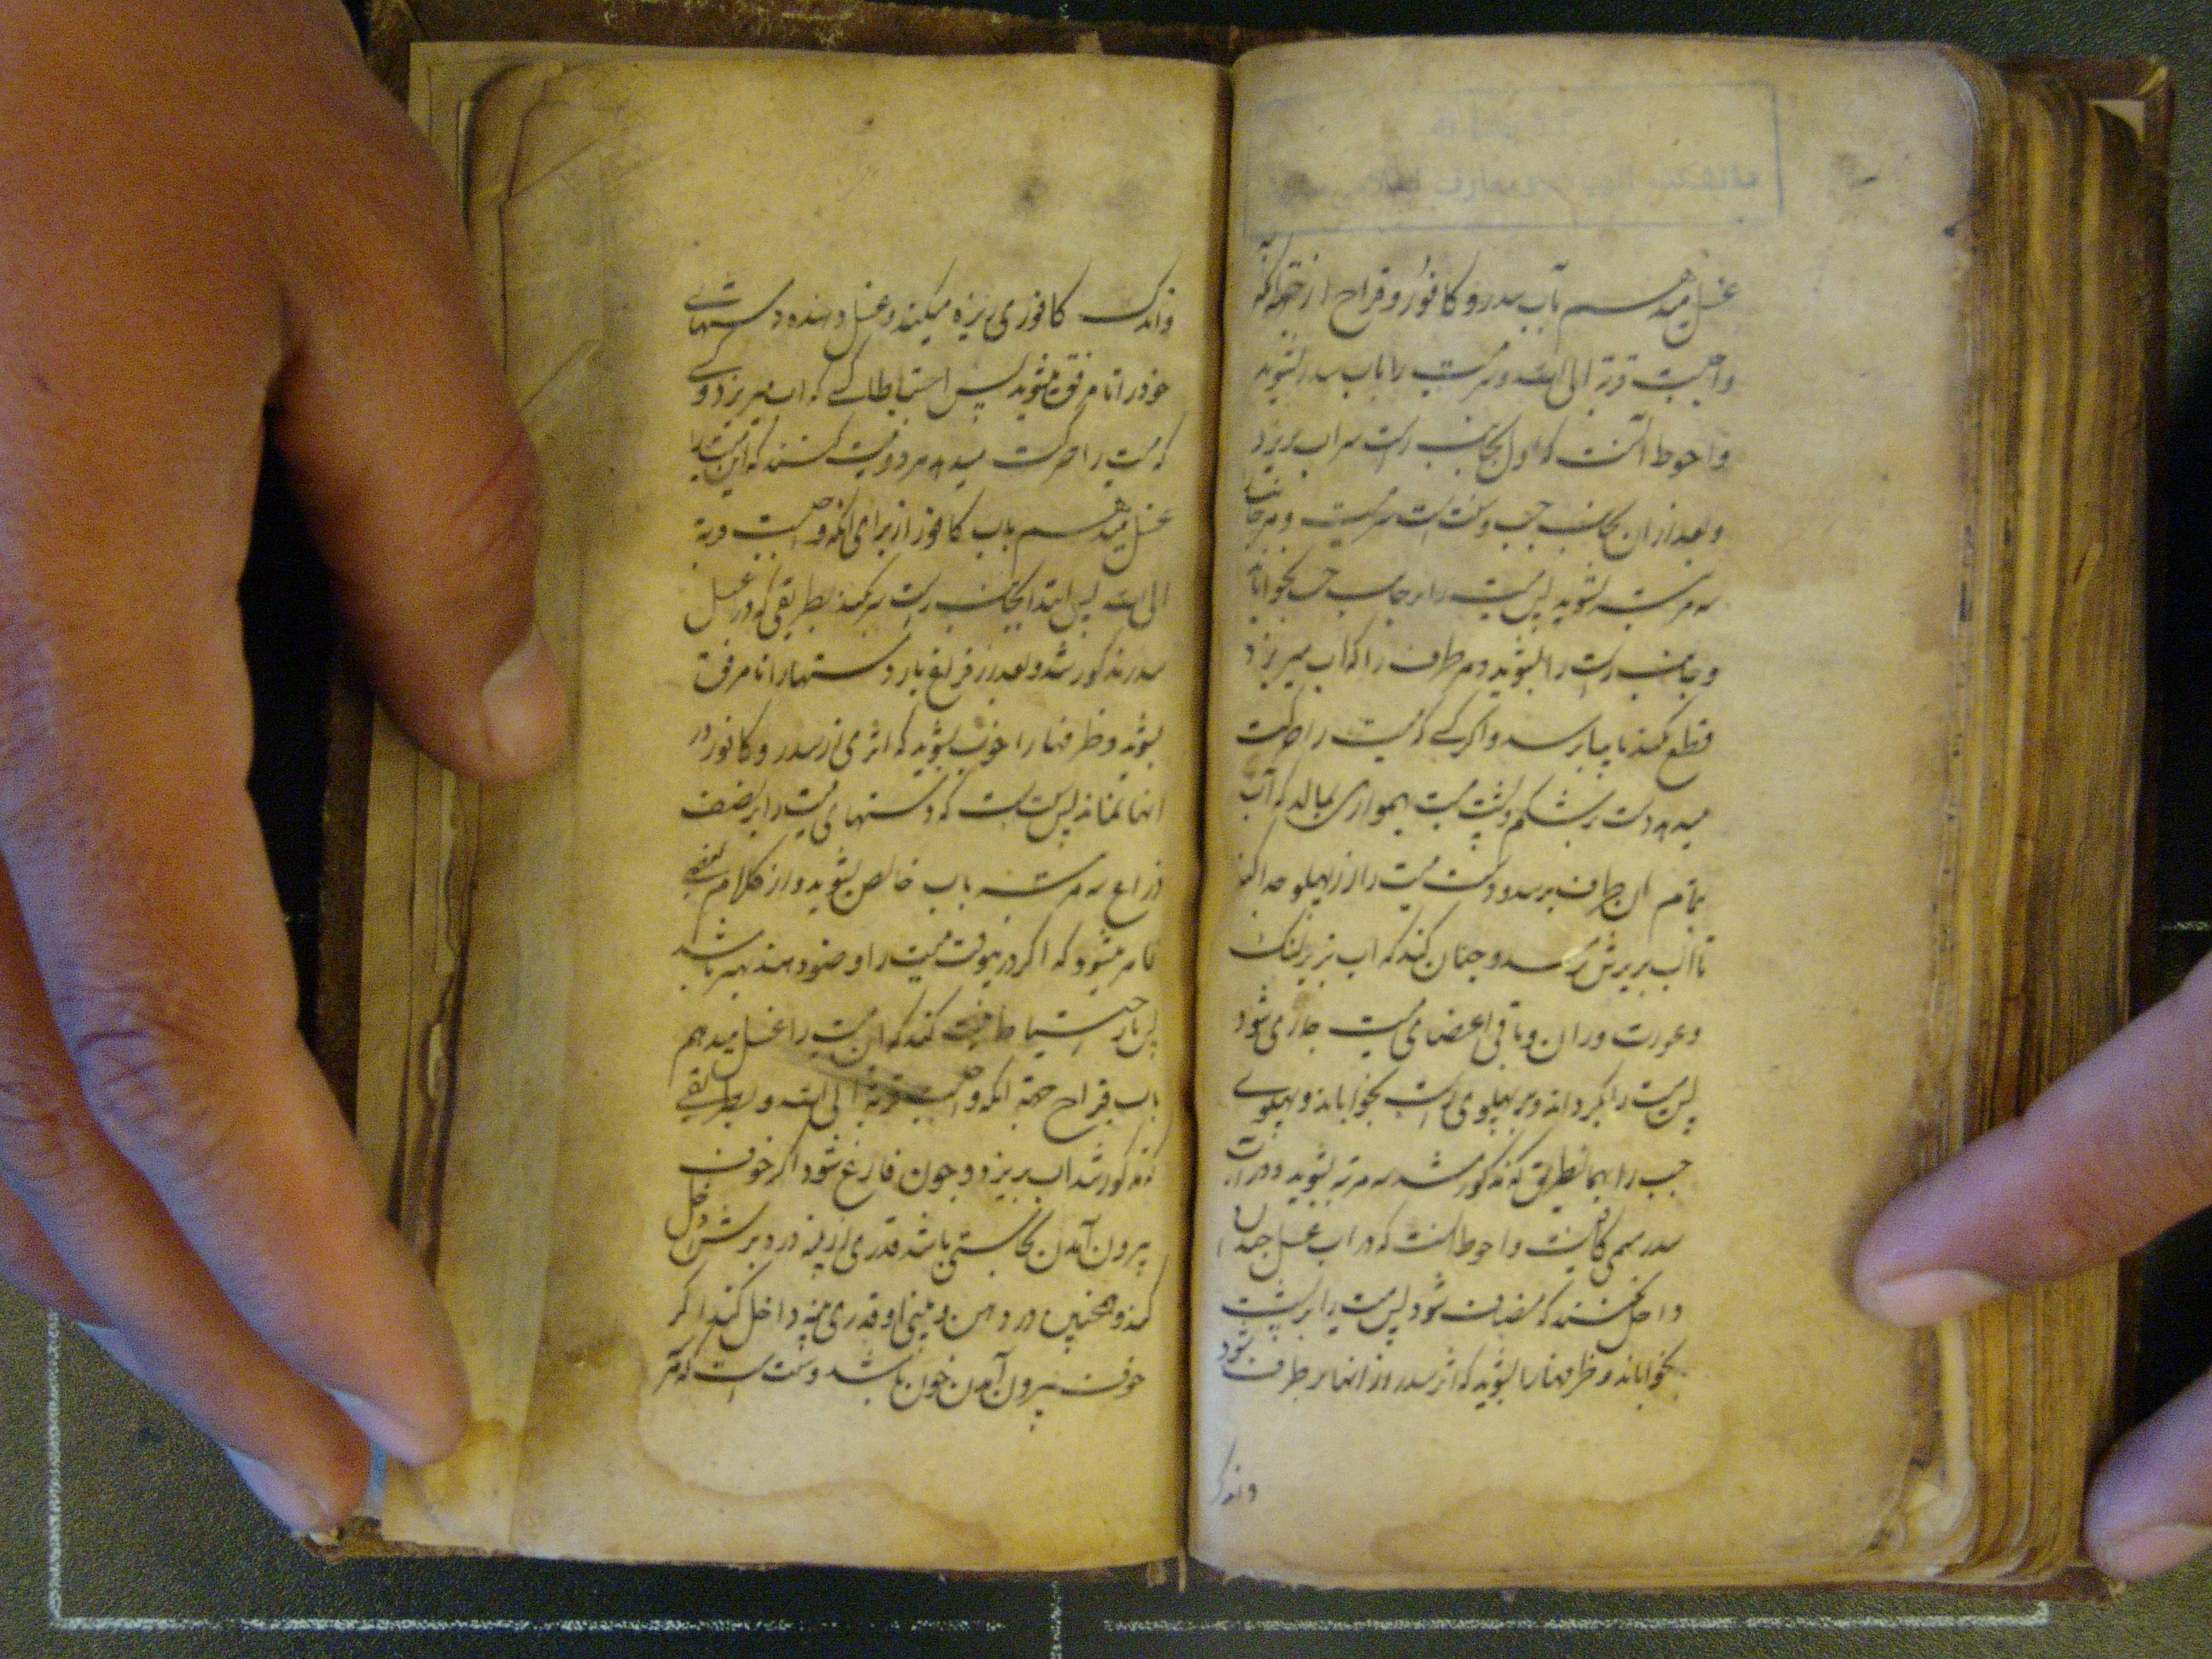 غسل میدهم بآب سدر و کافور و قراح از جهة آنکه
واجبست قربة الی الله و سر میت را باب سدر بشوید
و احوط آنست که اول بجانب راست سر اب بریزد
و بعد از ان بجانب چپ و سنت است
سه مرتبه بشوید پس میت را بر جانب چپ بخواباند
و جانب راست را بشوید و هر طرف را که اب میریزد
قطع نکند تا بپا برسد و اگر کسی که میت را حرکت
میدهد دست بر شکم و پشت میت بهمواری بمالد که آب
بتمام ان طرف برسد و دست میت را از پهلو جدا کند
تا اب بزیرش برسد و چنان کند که اب بزیر لنک
و عورت و ران و باقی اعضای میت جاری شود
پس میت را بگرداند و بر پهلوی راست بخواباند و پهلوی
چپ را بهمان طریق که مذکور شد سه مرتبه بشوید و در آب
سدر مسمی کافیست و احوط انست که در اب غسل چندان
داخل نکنند که مضاف شود پس میت را بر پشت
بخواباند و ظرفها را بشوید که اثر سدر از انها بر طرف شود
و اندک
و اندک کافوری ریزه میکنند و غسل دهنده دستهای
خود را تا مرفق میشوید پس احتیاطا کسی که اب میریزد و کسی
که میت را حرکت میدهد هر دو نیت کنند که این میت را
غسل میدهم باب کافور از برای انکه واجبست قربة
الی الله پس ابتدا بجانب راست سر کند بطریقی که در غسل
سدر مذکور شد و بعد از فراغ باز دستها را تا مرفق
بشوید و ظرفها را خوب بشوید که اثری از سدر و کافور در
انها نماند پس سنت است که دستهای میت را بر نصف
ذراع سه مرتبه باب خالص بشوید و از کلام بعضی
ظاهر میشود که اگر درینوقت میت را وضو دهند بهتر باشد
پس باز احتیاطا نیت کند که این میت را غسل میدهم
باب قراح جهة انکه واجبست قربة الی الله و بطریقی
که مذکور شد اب بریزد و چون فارغ شود اگر خوف
بیرون آمدن نجاستی باشد قدری از پنبه در دبرش داخل
کند و همچنین در دهن و بینی او قدری پنبه داخل کند اگر
خوف بیرون آمدن خون باشد و سنت است که